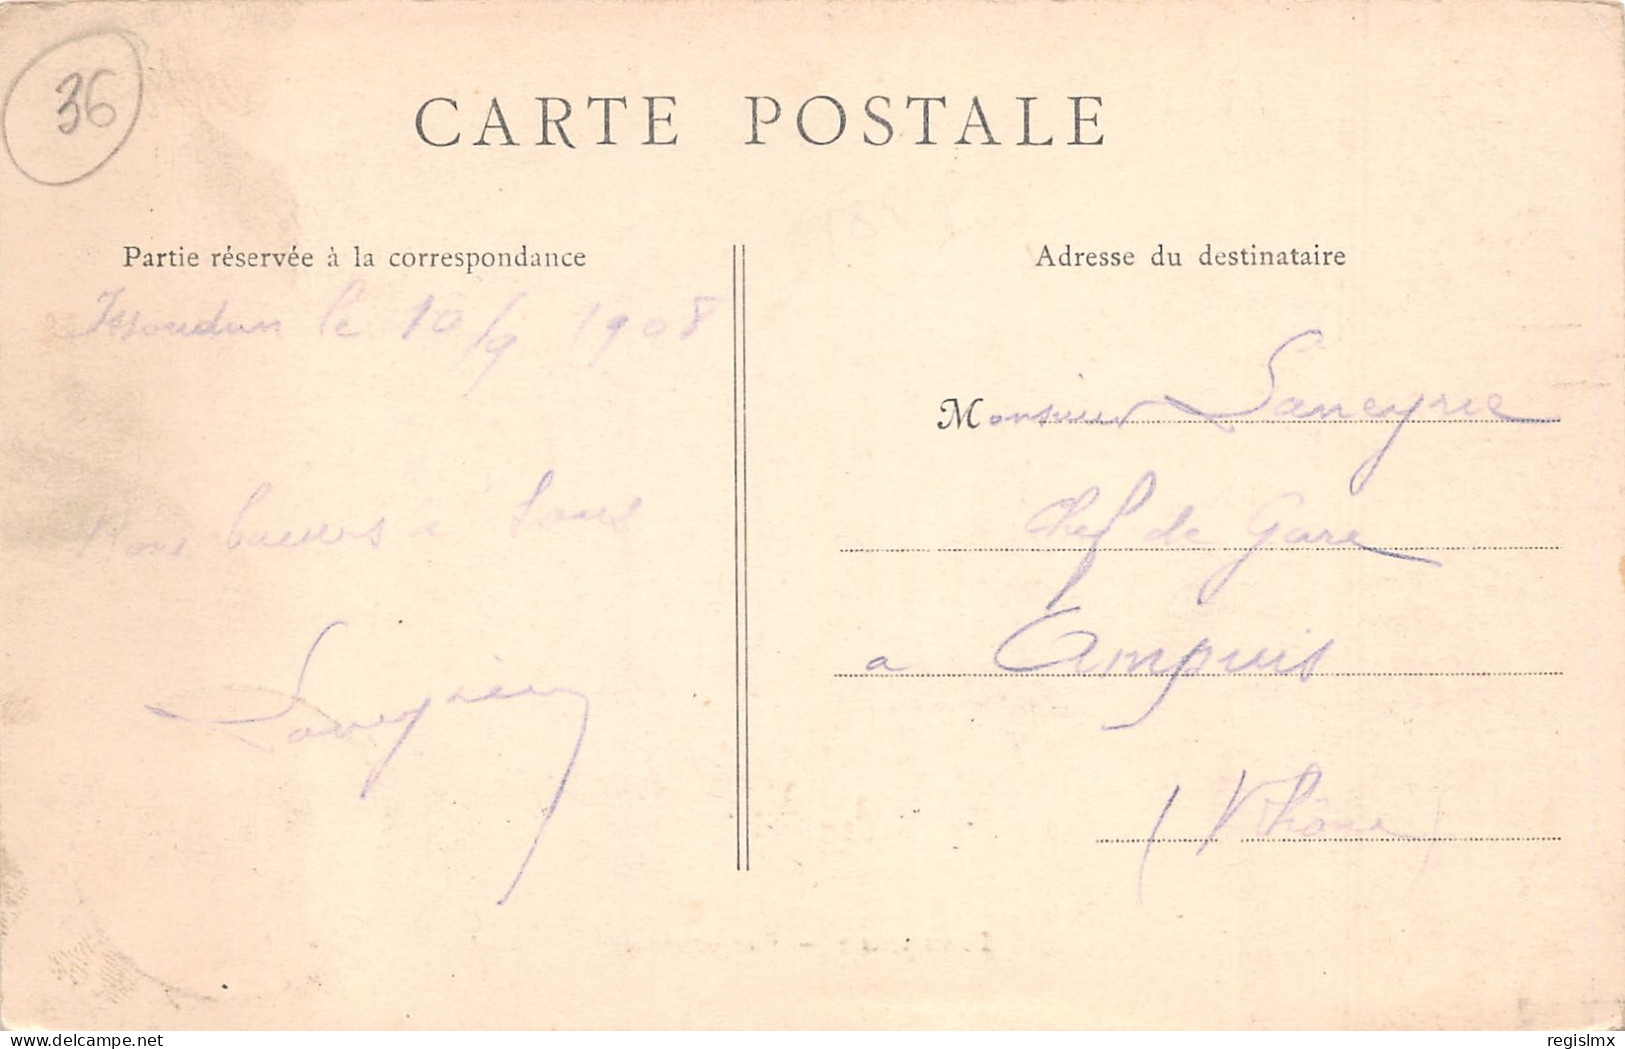 36
CARTE POSTALE
Partie réservée à la correspondance
Issoudun le 10/9 1908
Bons baisers à tous
Adresse du destinataire
Monsieur Laneyrie
Chef de Gare
a Ampuis
(Rhône)
delcampe.net
regislmx